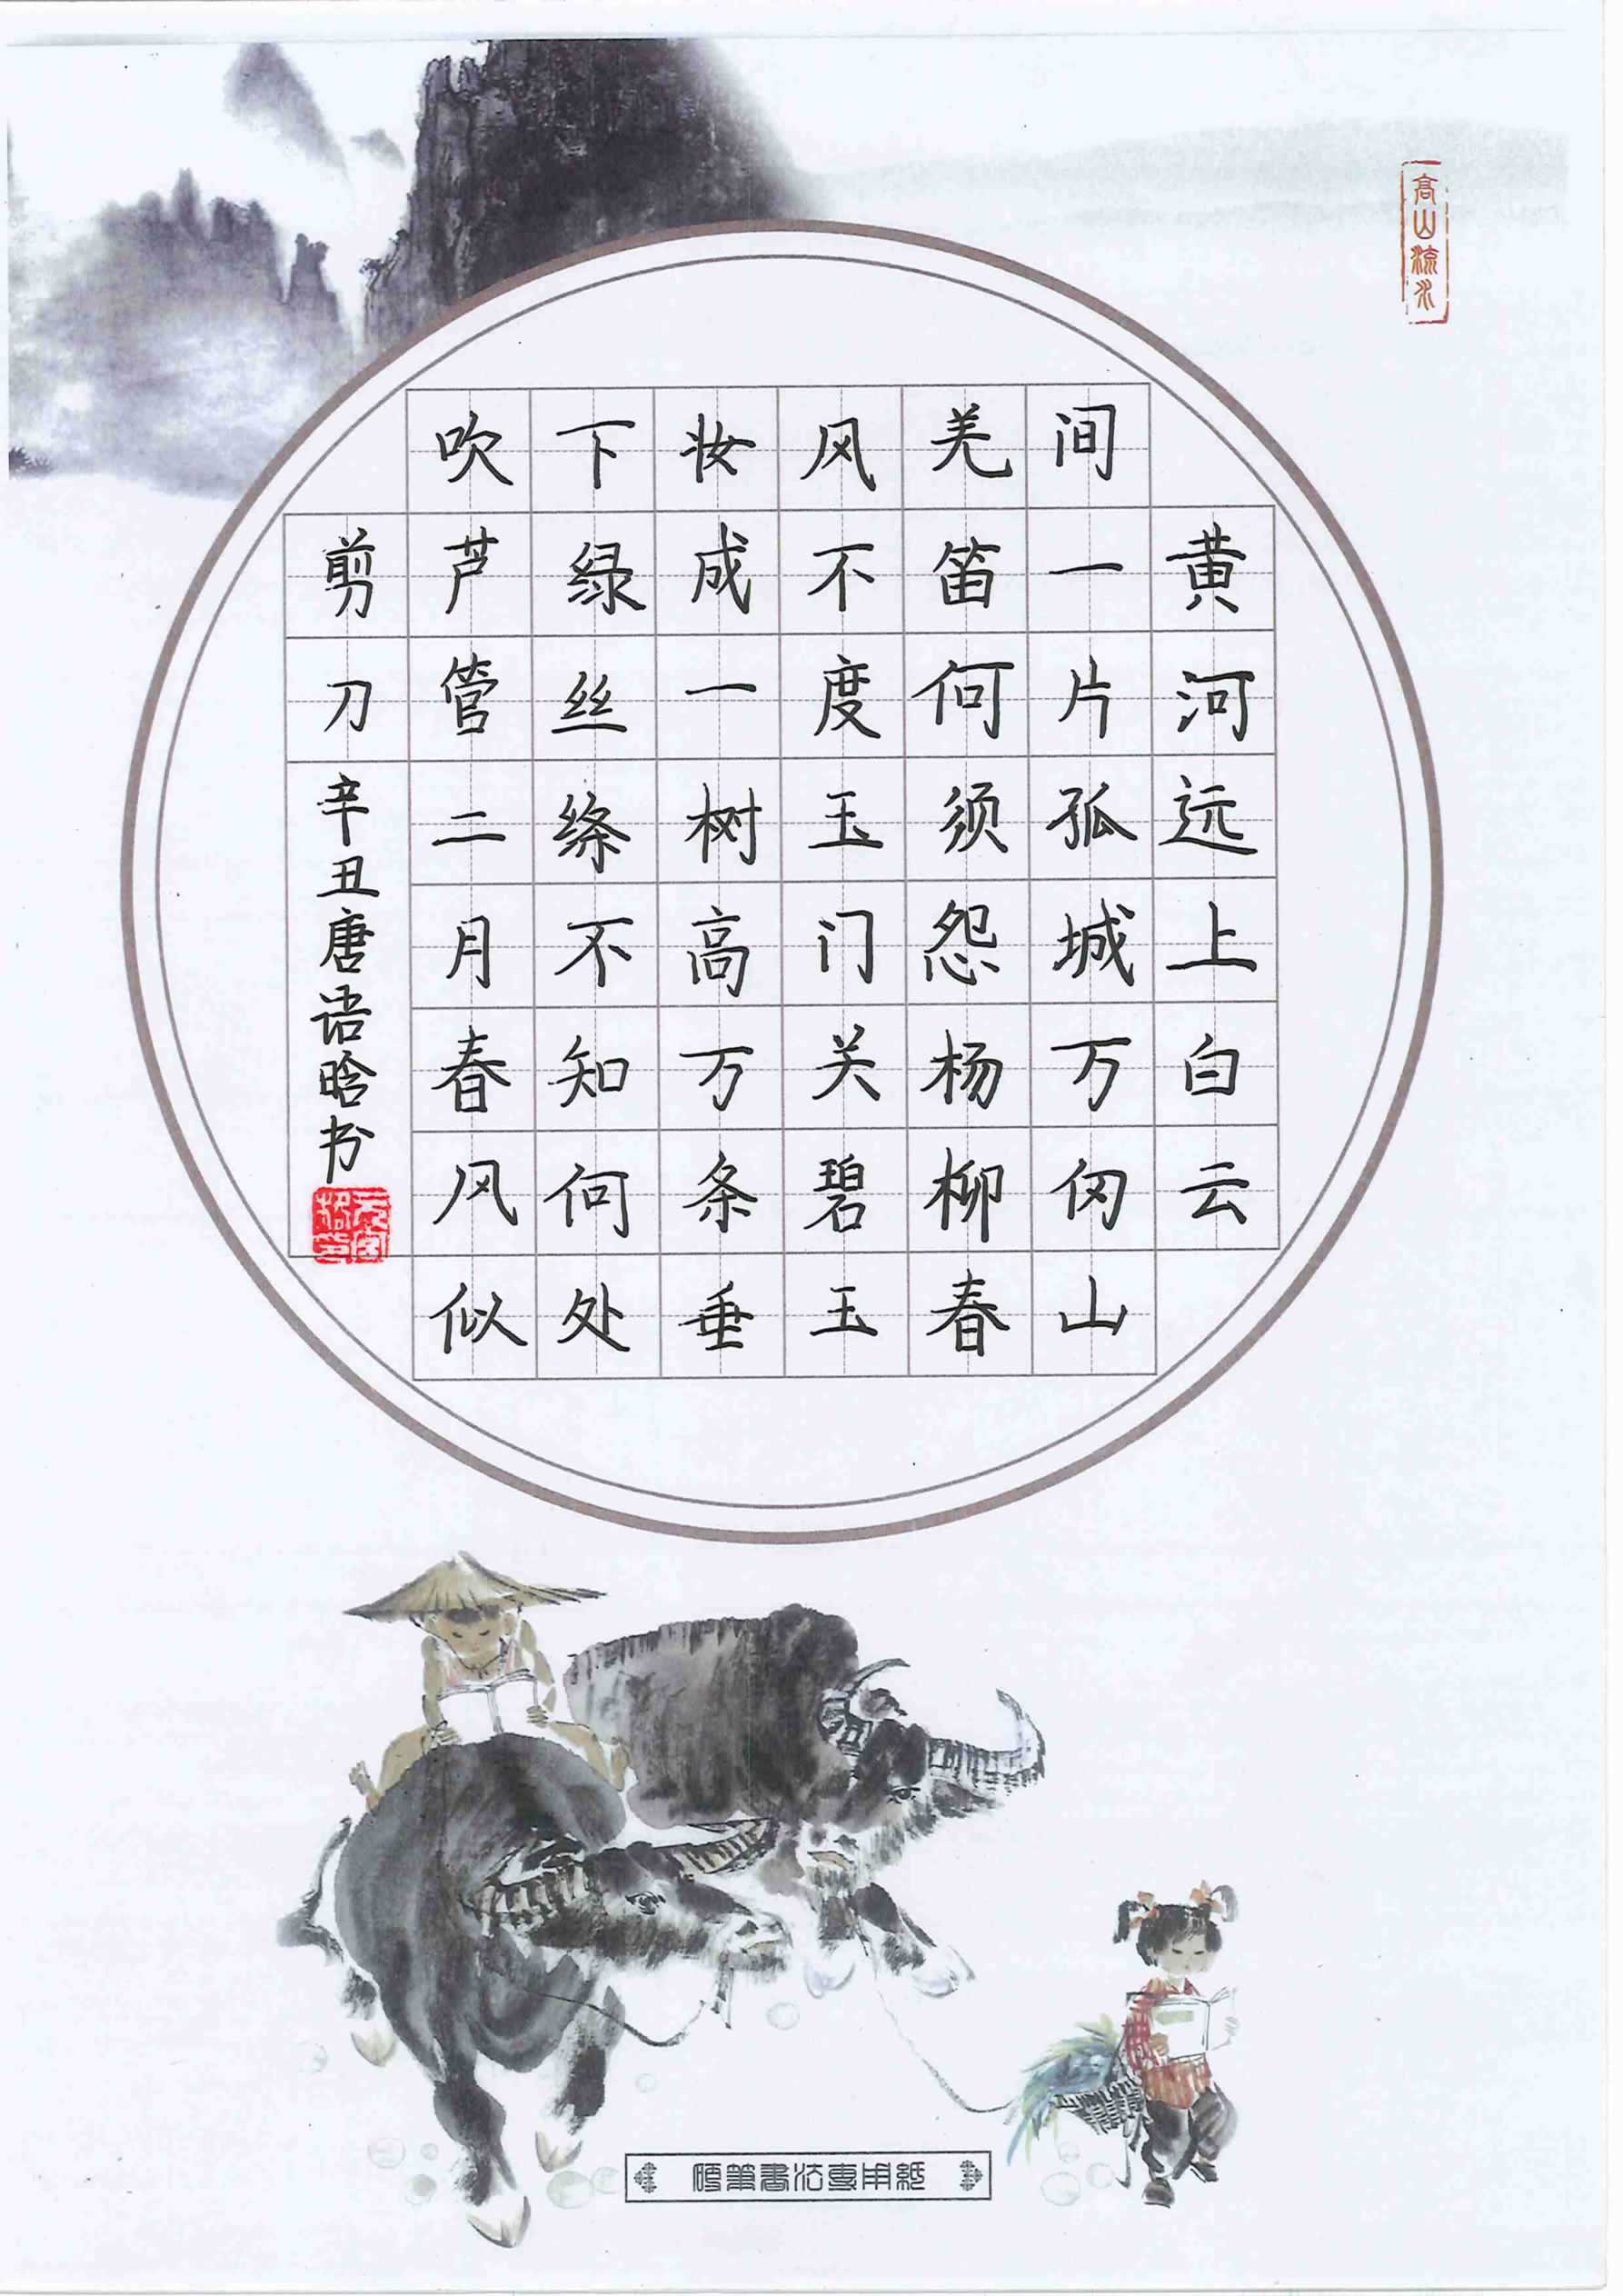 高山流水
黄河远上白云
间一片孤城万仞山
羌笛何须怨杨柳春
风不度玉门关碧玉
妆成一树高万条垂
下绿丝绦不知何处
吹芦管二月春风似
剪刀
辛丑唐语晗书
硬筆書法專用紙